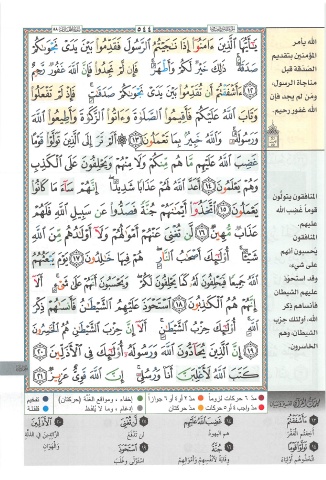 ٥٤٤
يَٰٓأَيُّهَا ٱلَّذِينَ ءَامَنُوٓا۟ إِذَا نَٰجَيْتُمُ ٱلرَّسُولَ فَقَدِّمُوا۟ بَيْنَ يَدَىْ نَجْوَىٰكُمْ
صَدَقَةً ۚ ذَٰلِكَ خَيْرٌ لَّكُمْ وَأَطْهَرُ ۚ فَإِن لَّمْ تَجِدُوا۟ فَإِنَّ ٱللَّهَ غَفُورٌ رَّحِيمٌ
١٢ ءَأَشْفَقْتُمْ أَن تُقَدِّمُوا۟ بَيْنَ يَدَىْ نَجْوَىٰكُمْ صَدَقَٰتٍ ۚ فَإِذْ لَمْ تَفْعَلُوا۟
وَتَابَ ٱللَّهُ عَلَيْكُمْ فَأَقِيمُوا۟ ٱلصَّلَوٰةَ وَءَاتُوا۟ ٱلزَّكَوٰةَ وَأَطِيعُوا۟ ٱللَّهَ
وَرَسُولَهُۥ ۚ وَٱللَّهُ خَبِيرٌۢ بِمَا تَعْمَلُونَ ١٣ أَلَمْ تَرَ إِلَى ٱلَّذِينَ تَوَلَّوْا۟ قَوْمًا
غَضِبَ ٱللَّهُ عَلَيْهِم مَّا هُم مِّنكُمْ وَلَا مِنْهُمْ وَيَحْلِفُونَ عَلَى ٱلْكَذِبِ
وَهُمْ يَعْلَمُونَ ١٤ أَعَدَّ ٱللَّهُ لَهُمْ عَذَابًا شَدِيدًا ۖ إِنَّهُمْ سَآءَ مَا كَانُوا۟
يَعْمَلُونَ ١٥ ٱتَّخَذُوٓا۟ أَيْمَٰنَهُمْ جُنَّةً فَصَدُّوا۟ عَن سَبِيلِ ٱللَّهِ فَلَهُمْ
عَذَابٌ مُّهِينٌ ١٦ لَّن تُغْنِىَ عَنْهُمْ أَمْوَٰلُهُمْ وَلَآ أَوْلَٰدُهُم مِّنَ ٱللَّهِ
شَيْـًٔا ۚ أُو۟لَٰٓئِكَ أَصْحَٰبُ ٱلنَّارِ ۖ هُمْ فِيهَا خَٰلِدُونَ ١٧ يَوْمَ يَبْعَثُهُمُ
ٱللَّهُ جَمِيعًا فَيَحْلِفُونَ لَهُۥ كَمَا يَحْلِفُونَ لَكُمْ ۖ وَيَحْسَبُونَ أَنَّهُمْ عَلَىٰ شَىْءٍ ۚ أَلَآ
إِنَّهُمْ هُمُ ٱلْكَٰذِبُونَ ١٨ ٱسْتَحْوَذَ عَلَيْهِمُ ٱلشَّيْطَٰنُ فَأَنسَىٰهُمْ ذِكْرَ
ٱللَّهِ ۚ أُو۟لَٰٓئِكَ حِزْبُ ٱلشَّيْطَٰنِ ۚ أَلَآ إِنَّ حِزْبَ ٱلشَّيْطَٰنِ هُمُ ٱلْخَٰسِرُونَ
١٩ إِنَّ ٱلَّذِينَ يُحَآدُّونَ ٱللَّهَ وَرَسُولَهُۥٓ أُو۟لَٰٓئِكَ فِى ٱلْأَذَلِّينَ ٢٠
كَتَبَ ٱللَّهُ لَأَغْلِبَنَّ أَنَا۠ وَرُسُلِىٓ ۚ إِنَّ ٱللَّهَ قَوِىٌّ عَزِيزٌ ٢١
الله يأمر
المؤمنين بتقديم
الصدقة قبل
مناجاة الرسول،
ومَن لم يجد فإن
الله غفور رحيم.
المنافقون يتولَّون
قوماً غضب الله
عليهم.
يحسبون أنهم
على شيء،
وقد استحوذ
عليهم الشيطان
فأنساهم ذكر
الله، أولئك حزب
الشيطان، وهم
الخاسرون.
مدّ ٦ حركات لزوماً
مدّ ٢ أو ٤ أو ٦ جوازاً
إخفاء، ومواقع الغُنَّة (حركتان)
تفخيم
مدّ واجب ٤ أو ٥ حركات
مدّ حركتان
إدغام، وما لا يُلفَظ
قلقلة